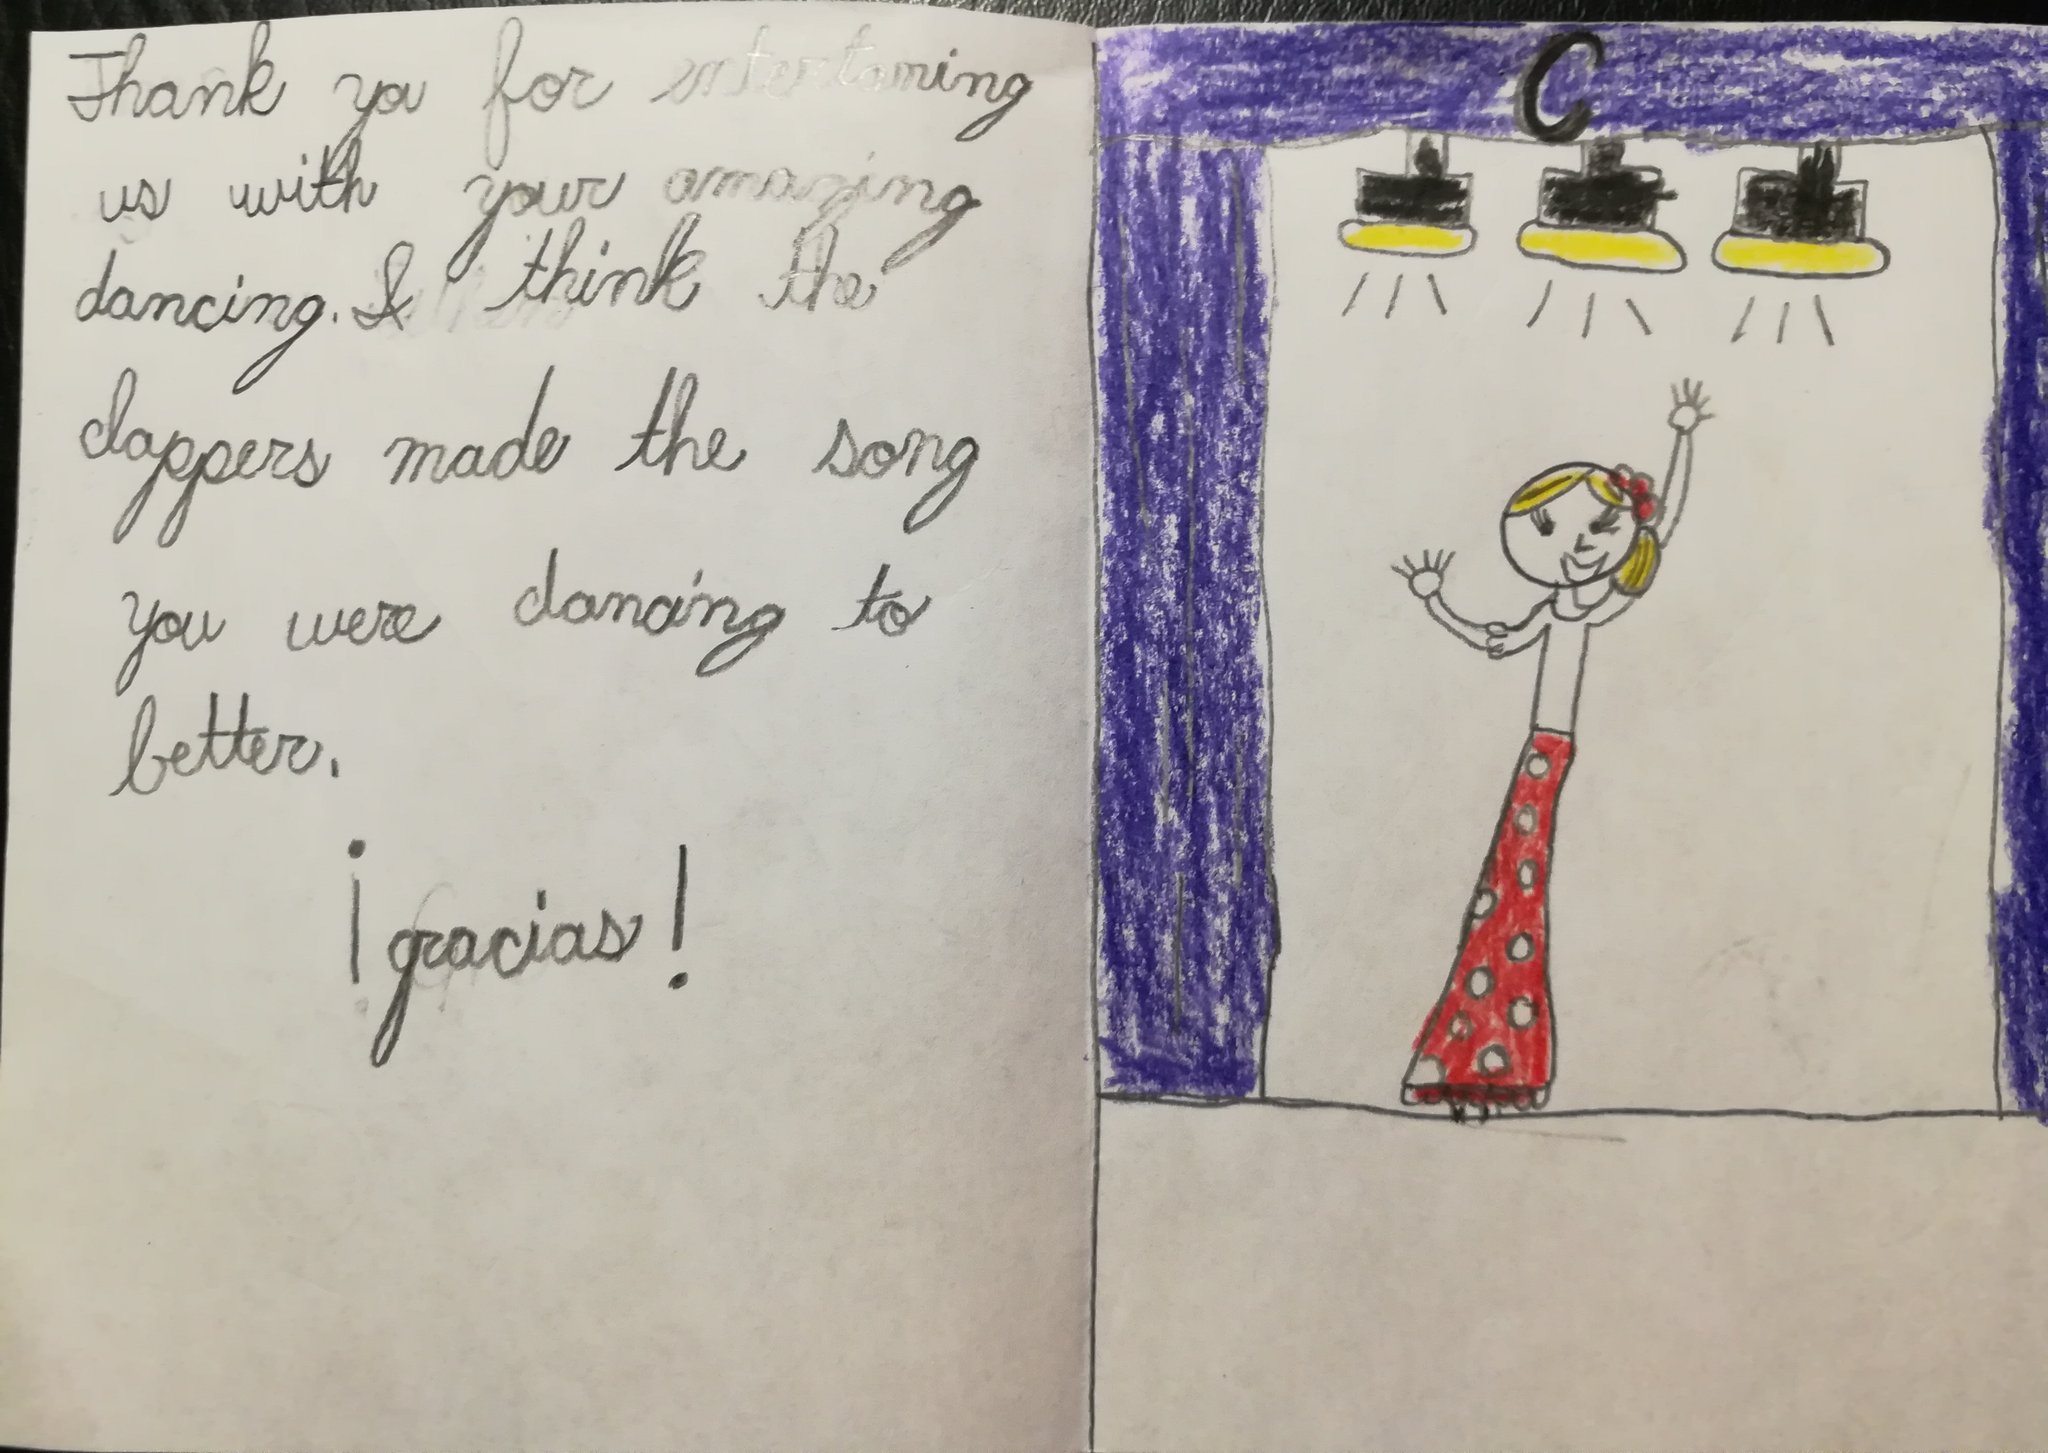 Thank you for entertaning
us with your amazing
dancing. I think the
clappers made the song
you were dancing to
better.
¡gracias!
C